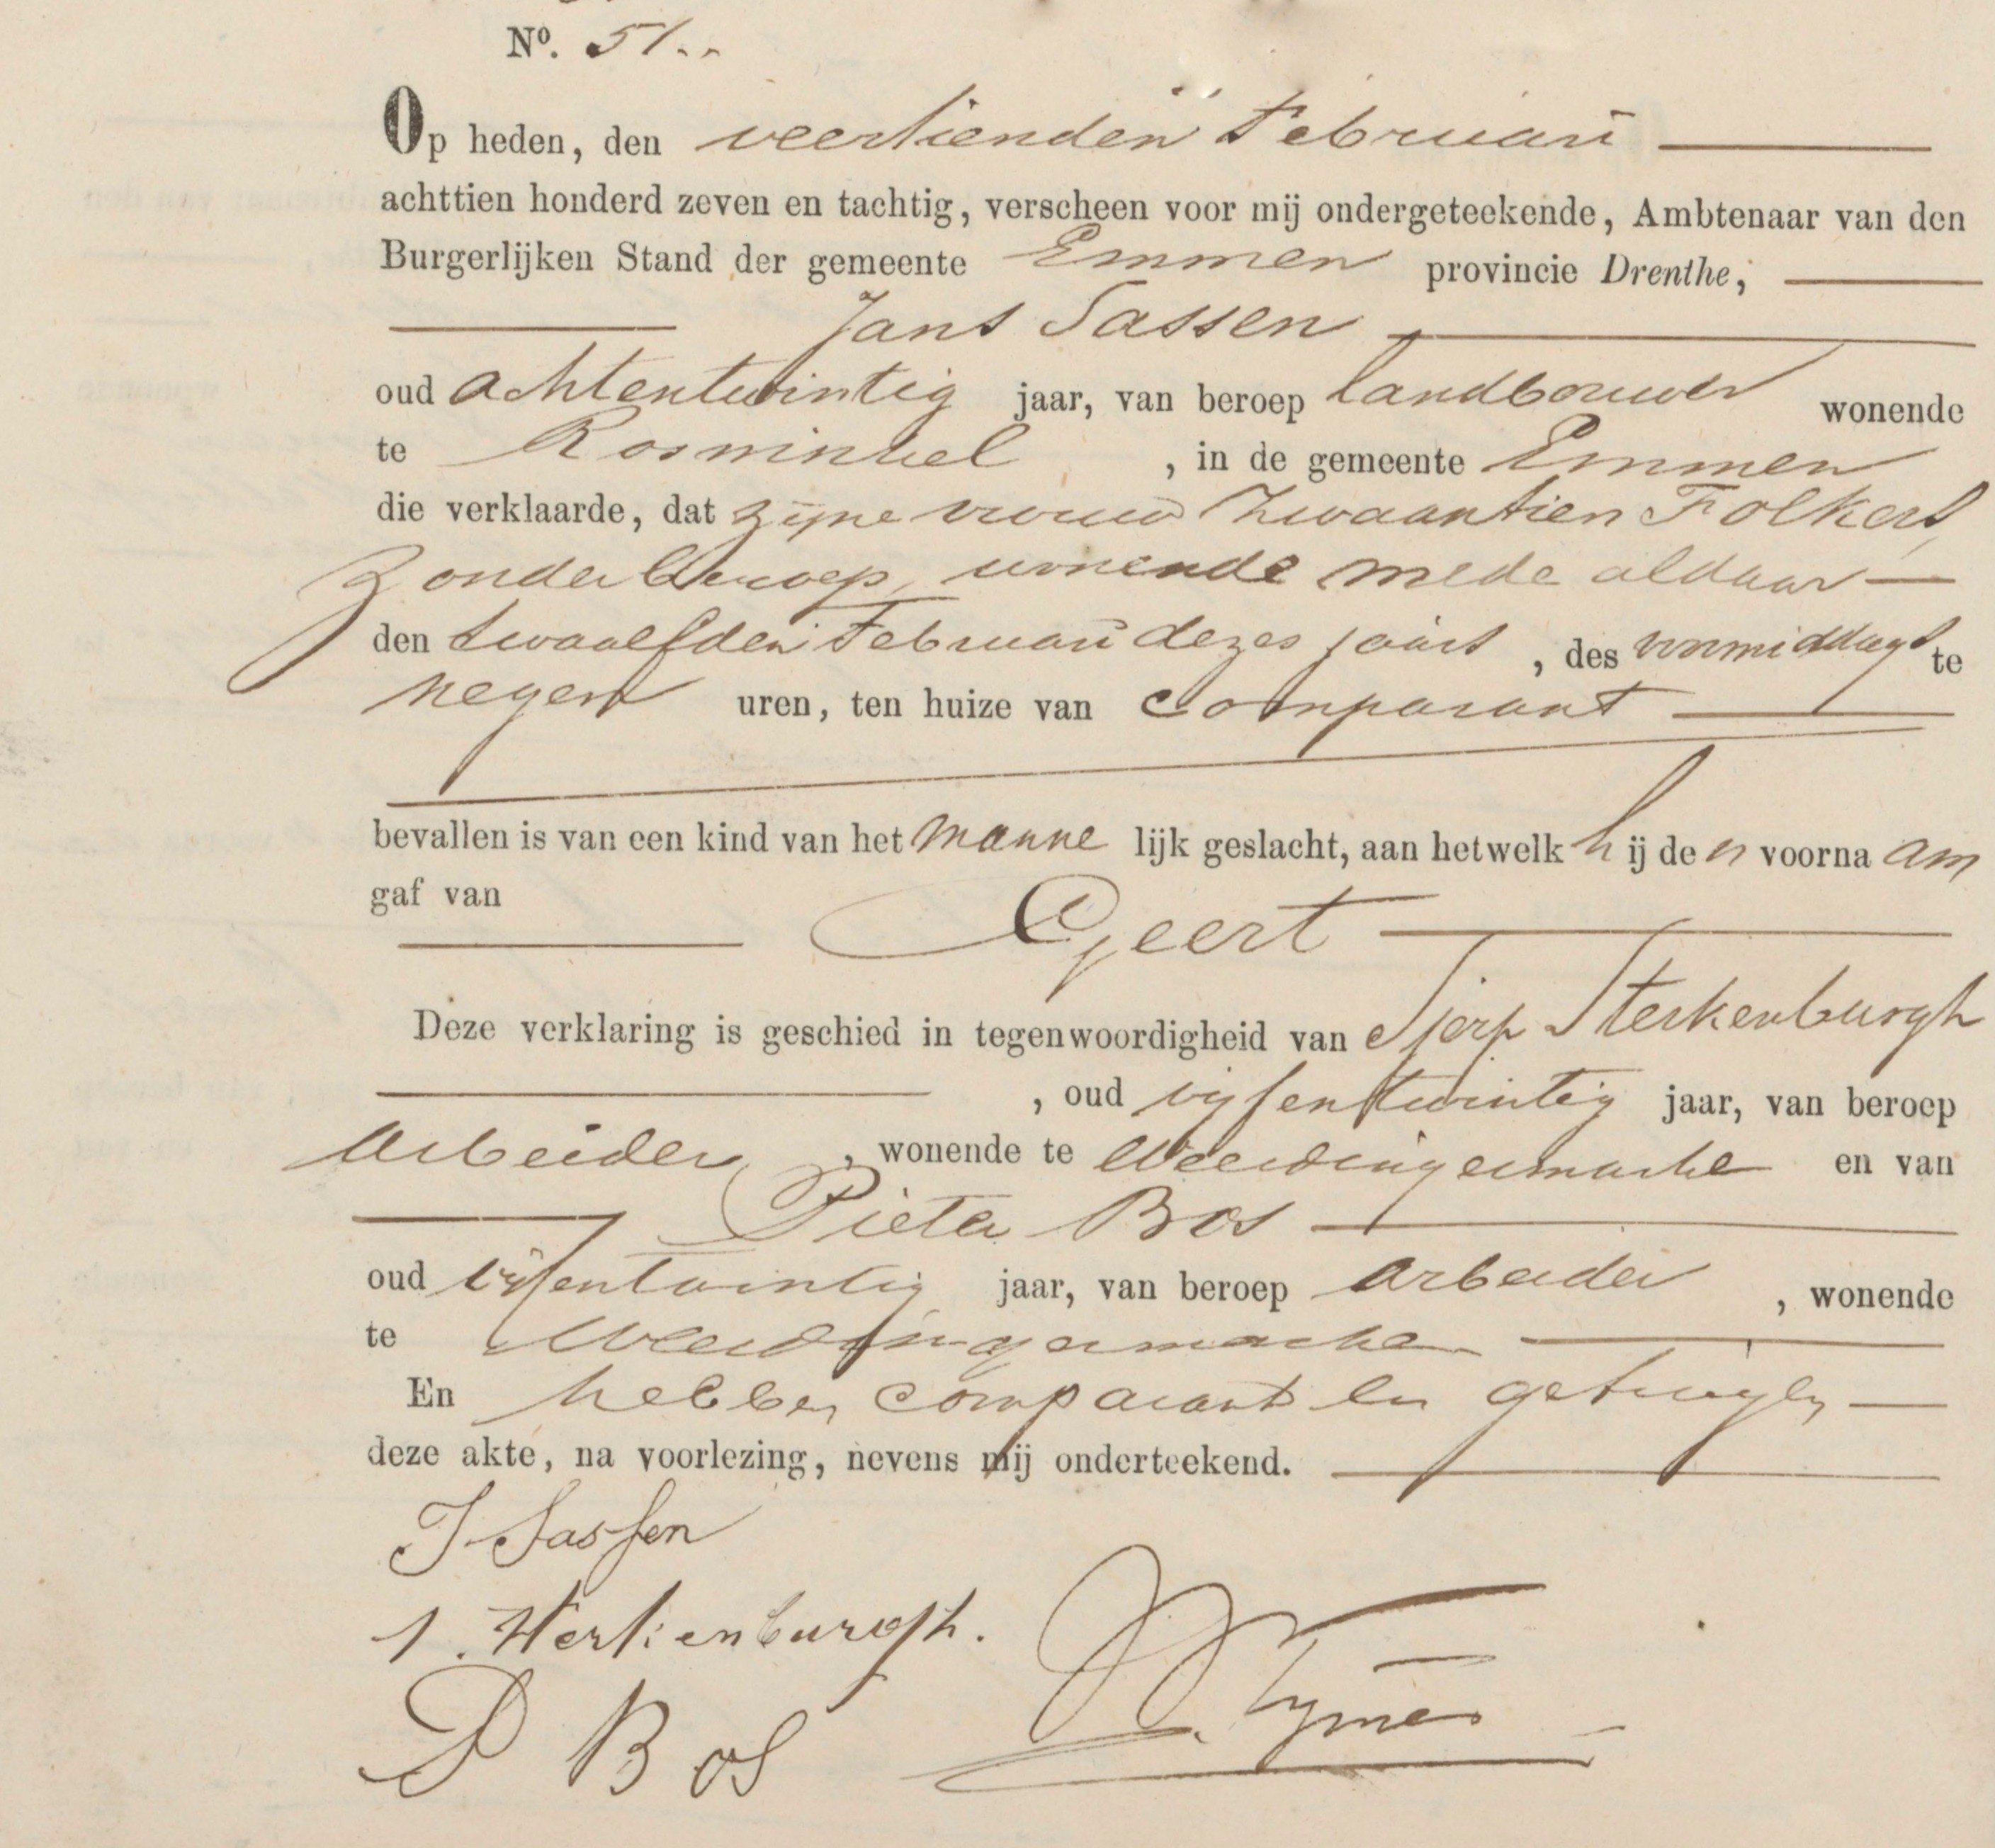 Nº. 51..
Op heden, den veertienden Februari
achttien honderd zeven en tachtig, verscheen voor mij ondergeteekende, Ambtenaar van den
Burgerlijken Stand der gemeente Emmen provincie Drenthe,
Jans Sassen
oud achtentwintig jaar, van beroep landbouwer wonende
te Roswinkel, in de gemeente Emmen
die verklaarde, dat zijne vrouw Zwaantien Folkers,
zonder beroep, wonende mede aldaar
den twaalfden Februari dezes jaars, des voormiddags te
negen uren, ten huize van comparant
bevallen is van een kind van het mannelijk geslacht, aan hetwelk hij den voornaam
gaf van
Geert
Deze verklaring is geschied in tegenwoordigheid van Sjerp Sterkenburgh
, oud vijfentwintig jaar, van beroep
arbeider, wonende te Weerdingermarke en van
Pieter Bos
oud vijfentwintig jaar, van beroep arbeider, wonende
te Weerdingermarke
En hebben comparant en getuigen
deze akte, na voorlezing, nevens mij onderteekend.
J Sassen
S. Sterkenburgh.
P Bos
Tymes